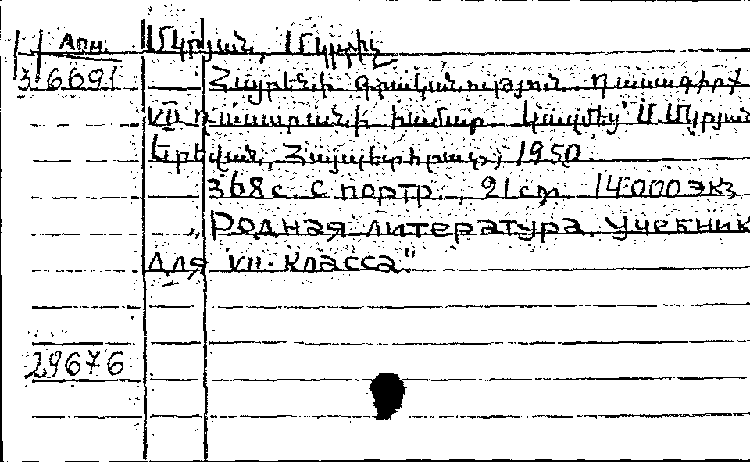 Арм. Մկրյան, Մկրտիչ
36691 Հայրենի գրականություն. Դասագիրք
VII դասարանի համար. Կազմեց՝ Մ. Մկրյան
Երևան, Հայպետհրատ, 1950.
368 с. с портр., 21 см. 14.000 экз
„Родная литература. Учебник
для VII. класса"
29676